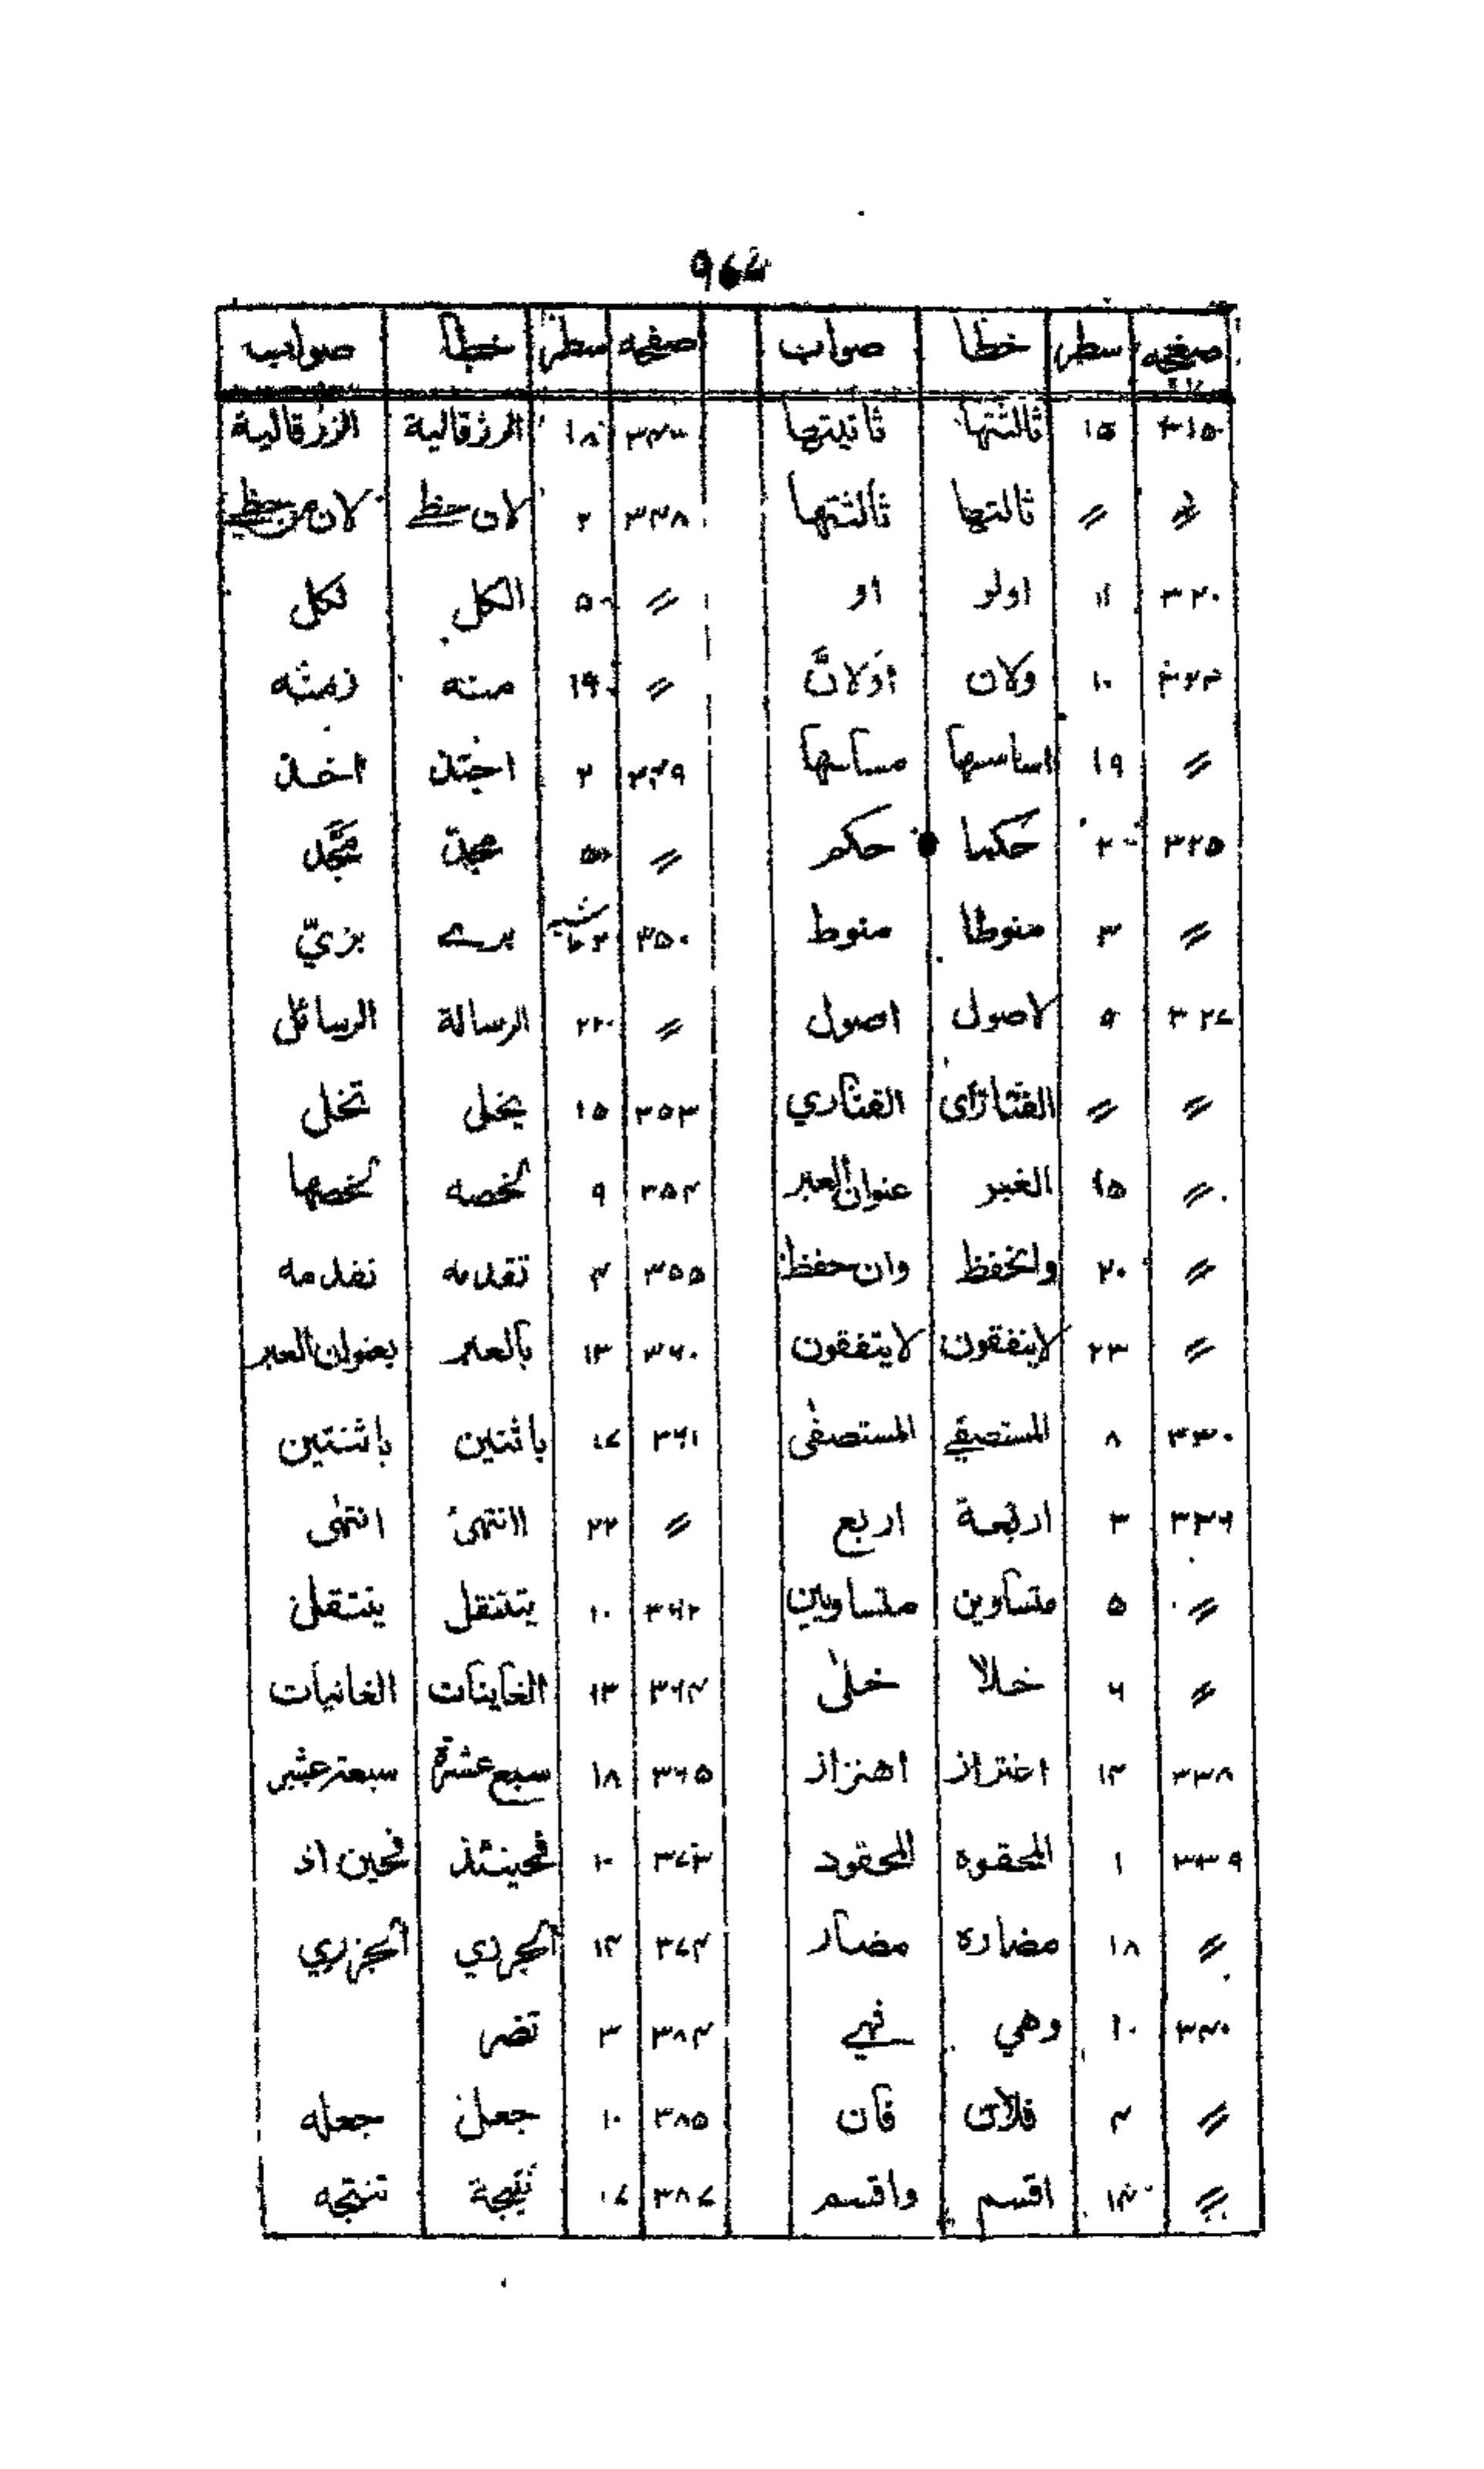 صفحه سطر خطا صواب صفحه سطر خطا صواب
۳۱۵ ۱۵ ثالثتها ثانيتها ۱۸ الرزقالية الزرقالية
〃 〃 ثالتها ثالثتها ۳۴۸ ۲ لان حظ لان من حظ
۳۲۰ ۱۱ اولو او 〃 ۵ الكل لكل
۱۰ ولان اولان 〃 ۱۹ منه زمنه
〃 ۱۹ اساسها مساسها ۳۴۹ ۲
۳۲۵ ۲۰ حكما حكم 〃 ۵
〃 ۳ منوطا منوط ۳۵۰ برے بزيّ
۳۲۷ ۹ لاصول اصول 〃 ۲۲ الرسالة الرسائل
〃 〃 الفناري 〃 ۳۵۳ ۱۵ يخل تخل
〃 ۱۵ الغير ۳۵۴ ۹ لخصه لخصها
〃 ۲۰ والحفظ وان حفظ ۳۵۵ ۴ تقدمه
〃 ۲۳ لاينفقون لايتفقون ۳۶۰ ۱۳
۳۳۰ ۸ المستصفے المستصفى ۳۶۱ ۱۷ باثنين باثنتين
۳۳۶ ۳ اربعة اربع 〃 ۲۲ اانتهى انتهى
〃 ۵ متساوين متساويين ۳۶۲ ۱۰ يتنقل ينتقل
〃 ۶ خلا خلى ۳۶۴ ۱۳ الغاينات الغانيات
۳۳۸ ۱۴ اغتزاز اهتزاز ۳۶۵ ۱۸ سبع عشرة سبعة عشر
۳۳۹ ۱ المحقوه المحقود ۳۷۳ ۱۰ فحينئذ فحين اذ
〃 ۱۸ مضاره مضار ۳۷۴ ۱۴ الجردي الجزري
۳۴۰ ۱۰ وهي فهي ۳۸۴ ۳ تضر
〃 ۴ فلان فان ۳۸۵ ۱۰ جعل جعله
〃 ۱۴ اقسم واقسم ۳۸۷ ۱۷ نتيجة تنتجه